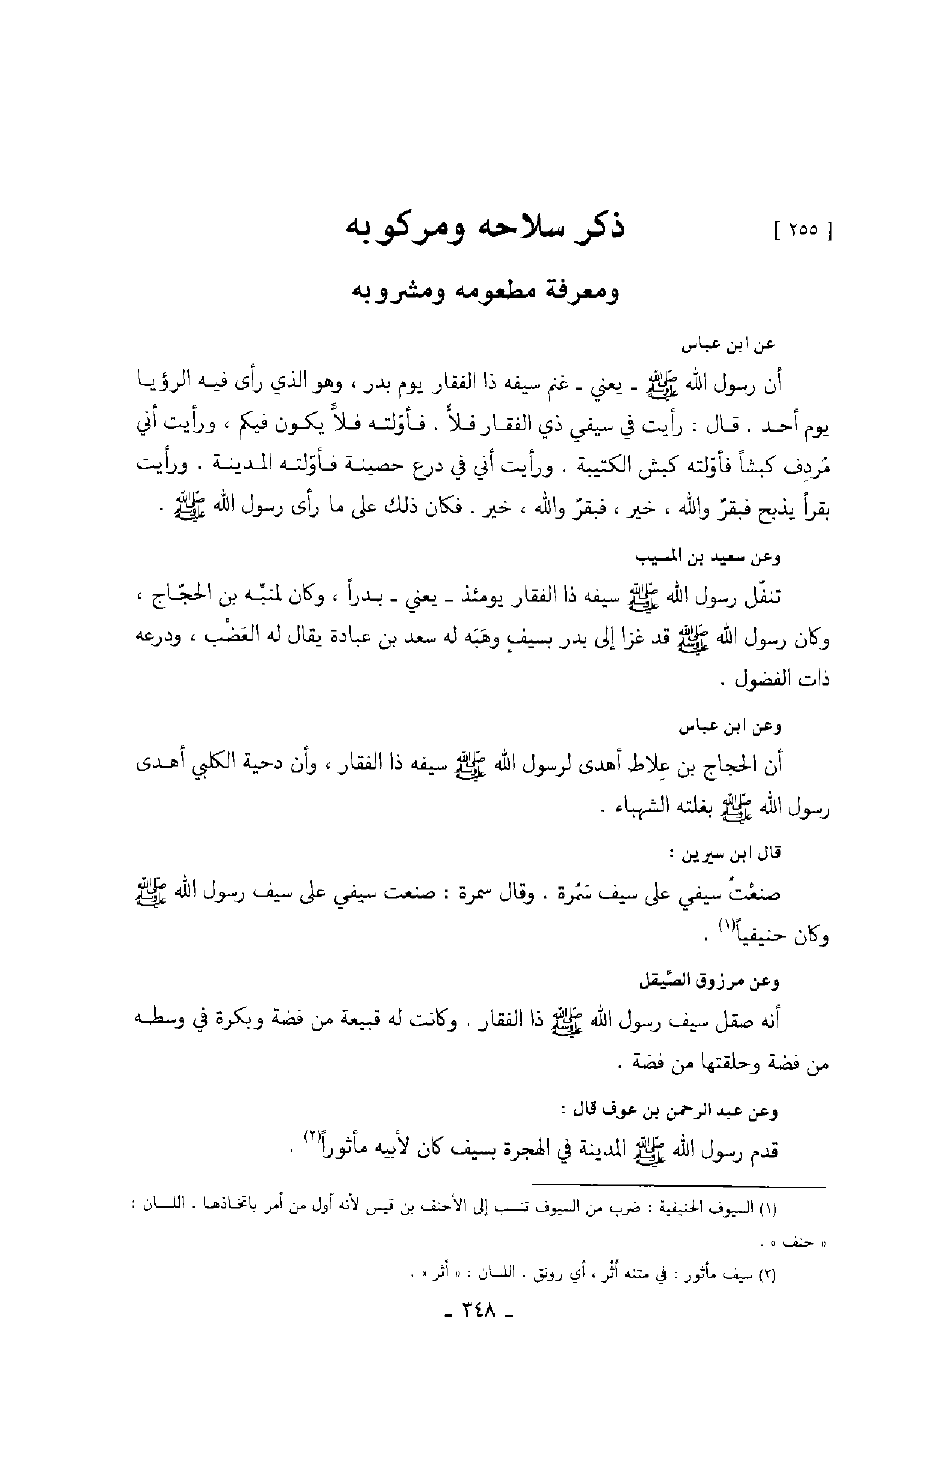 [ ٢٥٥ ] ذكر سلاحه ومركوبه
ومعرفة مطعومه ومشروبه
عن ابن عباس
أن رسول الله ﷺ ـ يعني ـ غنم سيفه ذا الفقار يوم بدر ، وهو الذي رأى فيه الرؤيا
يوم أحد . قال : رأيت في سيفي ذي الفقار فلاً . فأوّلته فلاًّ يكون فيكم ، ورأيت أني
مُردِف كبشاً فأوّلته كبش الكتيبة . ورأيت أني في درع حصينة فأوّلته المدينة . ورأيت
بقراً يذبح فبقرٌ والله ، خير ، فبقرٌ والله ، خير . فكان ذلك على ما رأى رسول الله ﷺ .
وعن سعيد بن المسيب
تنفّل رسول الله ﷺ سيفه ذا الفقار يومئذ ـ يعني ـ بدراً ، وكان لمنبّه بن الحجّاج ،
وكان رسول الله ﷺ قد غزا إلى بدر بسيفٍ وهَبَه له سعد بن عبادة يقال له العَضْب ، ودرعه
ذات الفضول .
وعن ابن عباس
أن الحجاج بن عِلاط أهدى لرسول الله ﷺ سيفه ذا الفقار ، وأن دحية الكلبي أهدى
رسول الله ﷺ بغلته الشهباء .
قال ابن سيرين :
صنعْتُ سيفي على سيف سَمُرة . وقال سمرة : صنعت سيفي على سيف رسول الله ﷺ
وكان حنيفياً(١) .
وعن مرزوق الصَّيقل
أنه صقل سيف رسول الله ﷺ ذا الفقار . وكانت له قبيعة من فضة وبكرة في وسطه
من فضة وحلقتها من فضة .
وعن عبد الرحمن بن عوف قال :
قدم رسول الله ﷺ المدينة في الهجرة بسيف كان لأبيه مأثوراً(٢) .
(١) السيوف الحنيفية : ضرب من السيوف تنسب إلى الأحنف بن قيس لأنه أول من أمر باتخاذها . اللسان :
« حنف » .
(٢) سيف مأثور : في متنه أُثْر ، أي رونق . اللسان : « أثر » .
ـ ٣٤٨ ـ